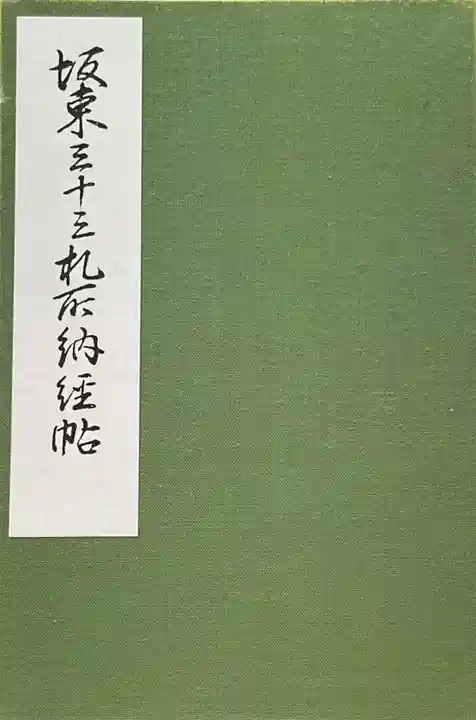 坂東三十三札所納経帖